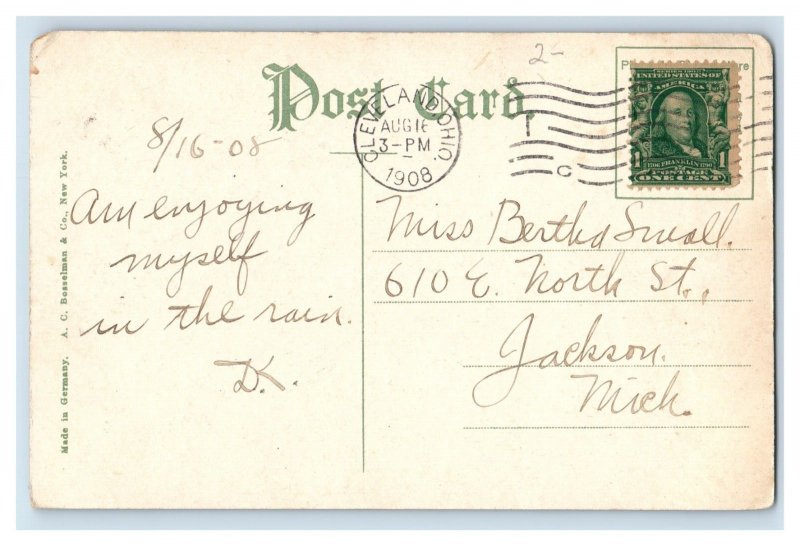 2-
Post Card.
CLEVELAND, OHIO.
AUG 16
3-PM
1908
T
C
SERIES 1902
UNITED STATES OF
AMERICA
1 1706 FRANKLIN 1790 1
POSTAGE
ONE CENT
8/16-08
Am enjoying
myself
in the rain.
D.
Miss Bertha Small.
610 E. North St.,
Jackson.
Mich.
Made in Germany. A. C. Bosselman & Co., New York.